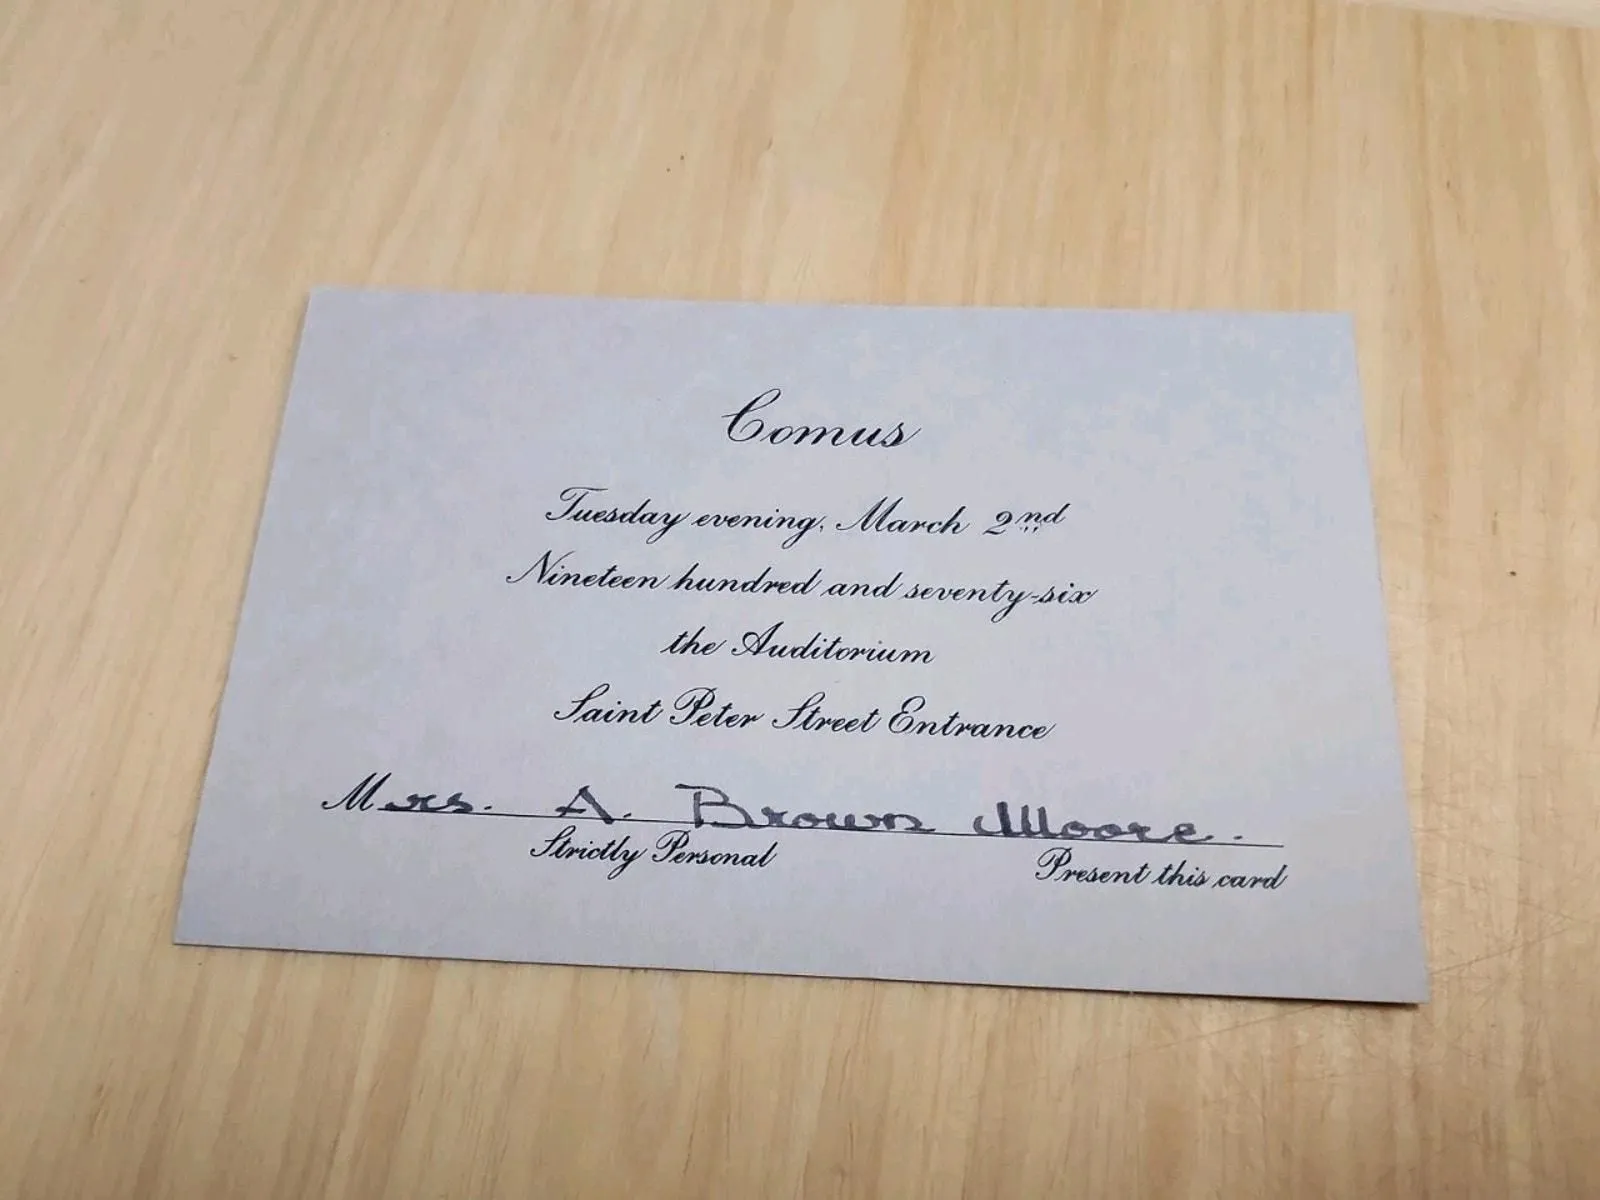 Comus
Tuesday evening, March 2nd
Nineteen hundred and seventy-six
the Auditorium
Saint Peter Street Entrance
Mrs. A. Brown Moore.
Strictly Personal Present this card